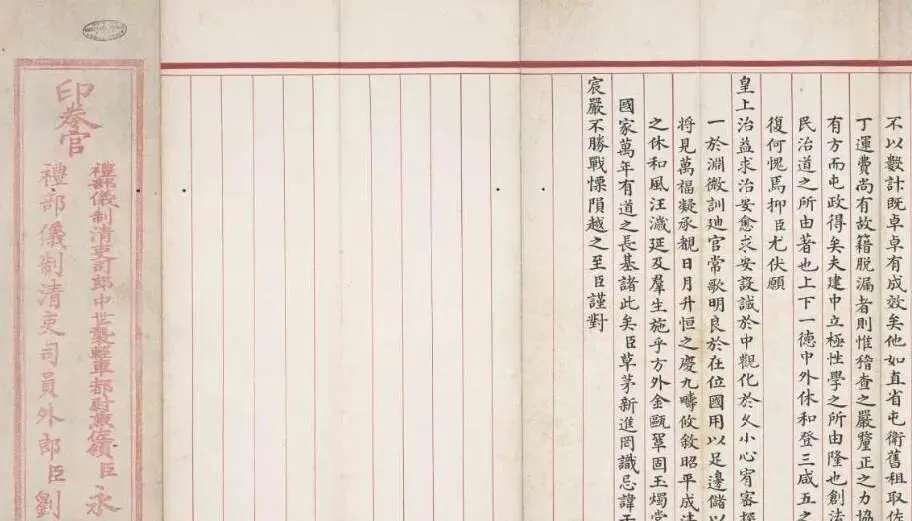 不以數計既卓卓有成效矣他如直省屯衛舊租取佐
丁運費尚有故籍脫漏者則惟稽查之嚴釐正之力協
有方而屯政得矣夫建中立極性學之所由隆也創法
民治道之所由著也上下一德中外休和登三咸五之
復何愧焉抑臣尤伏願
皇上治益求治安愈求安設誠於中觀化於久小心宥審
一於淵微訓廸官常歌明良於在位國用以足邊儲以
將見萬福凝承觀日月升恒之慶九疇攸敘昭平成
之休和風汪濊延及羣生施乎方外金甌鞏固玉燭
國家萬年有道之長基諸此矣臣草茅新進罔識忌諱
宸嚴不勝戰慄隕越之至臣謹對
印卷官
禮部儀制清吏司郎中世襲輕車都尉兼佐領臣永
禮部儀制清吏司員外郎臣劉